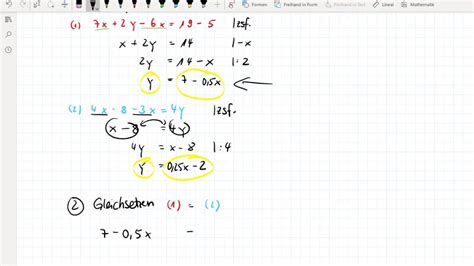 Formen Freihand in Form Freihand in Text Mathematik
(1) 7x + 2y - 6x = 19 - 5 | zsf.
x + 2y = 14 | - x
2y = 14 - x | : 2
y = 7 - 0,5x
(2) 4x - 8 - 3x = 4y | zsf.
x - 8 = 4y
4y = x - 8 | : 4
y = 0,25x - 2
② Gleichsetzen (1) = (2)
7 - 0,5x =